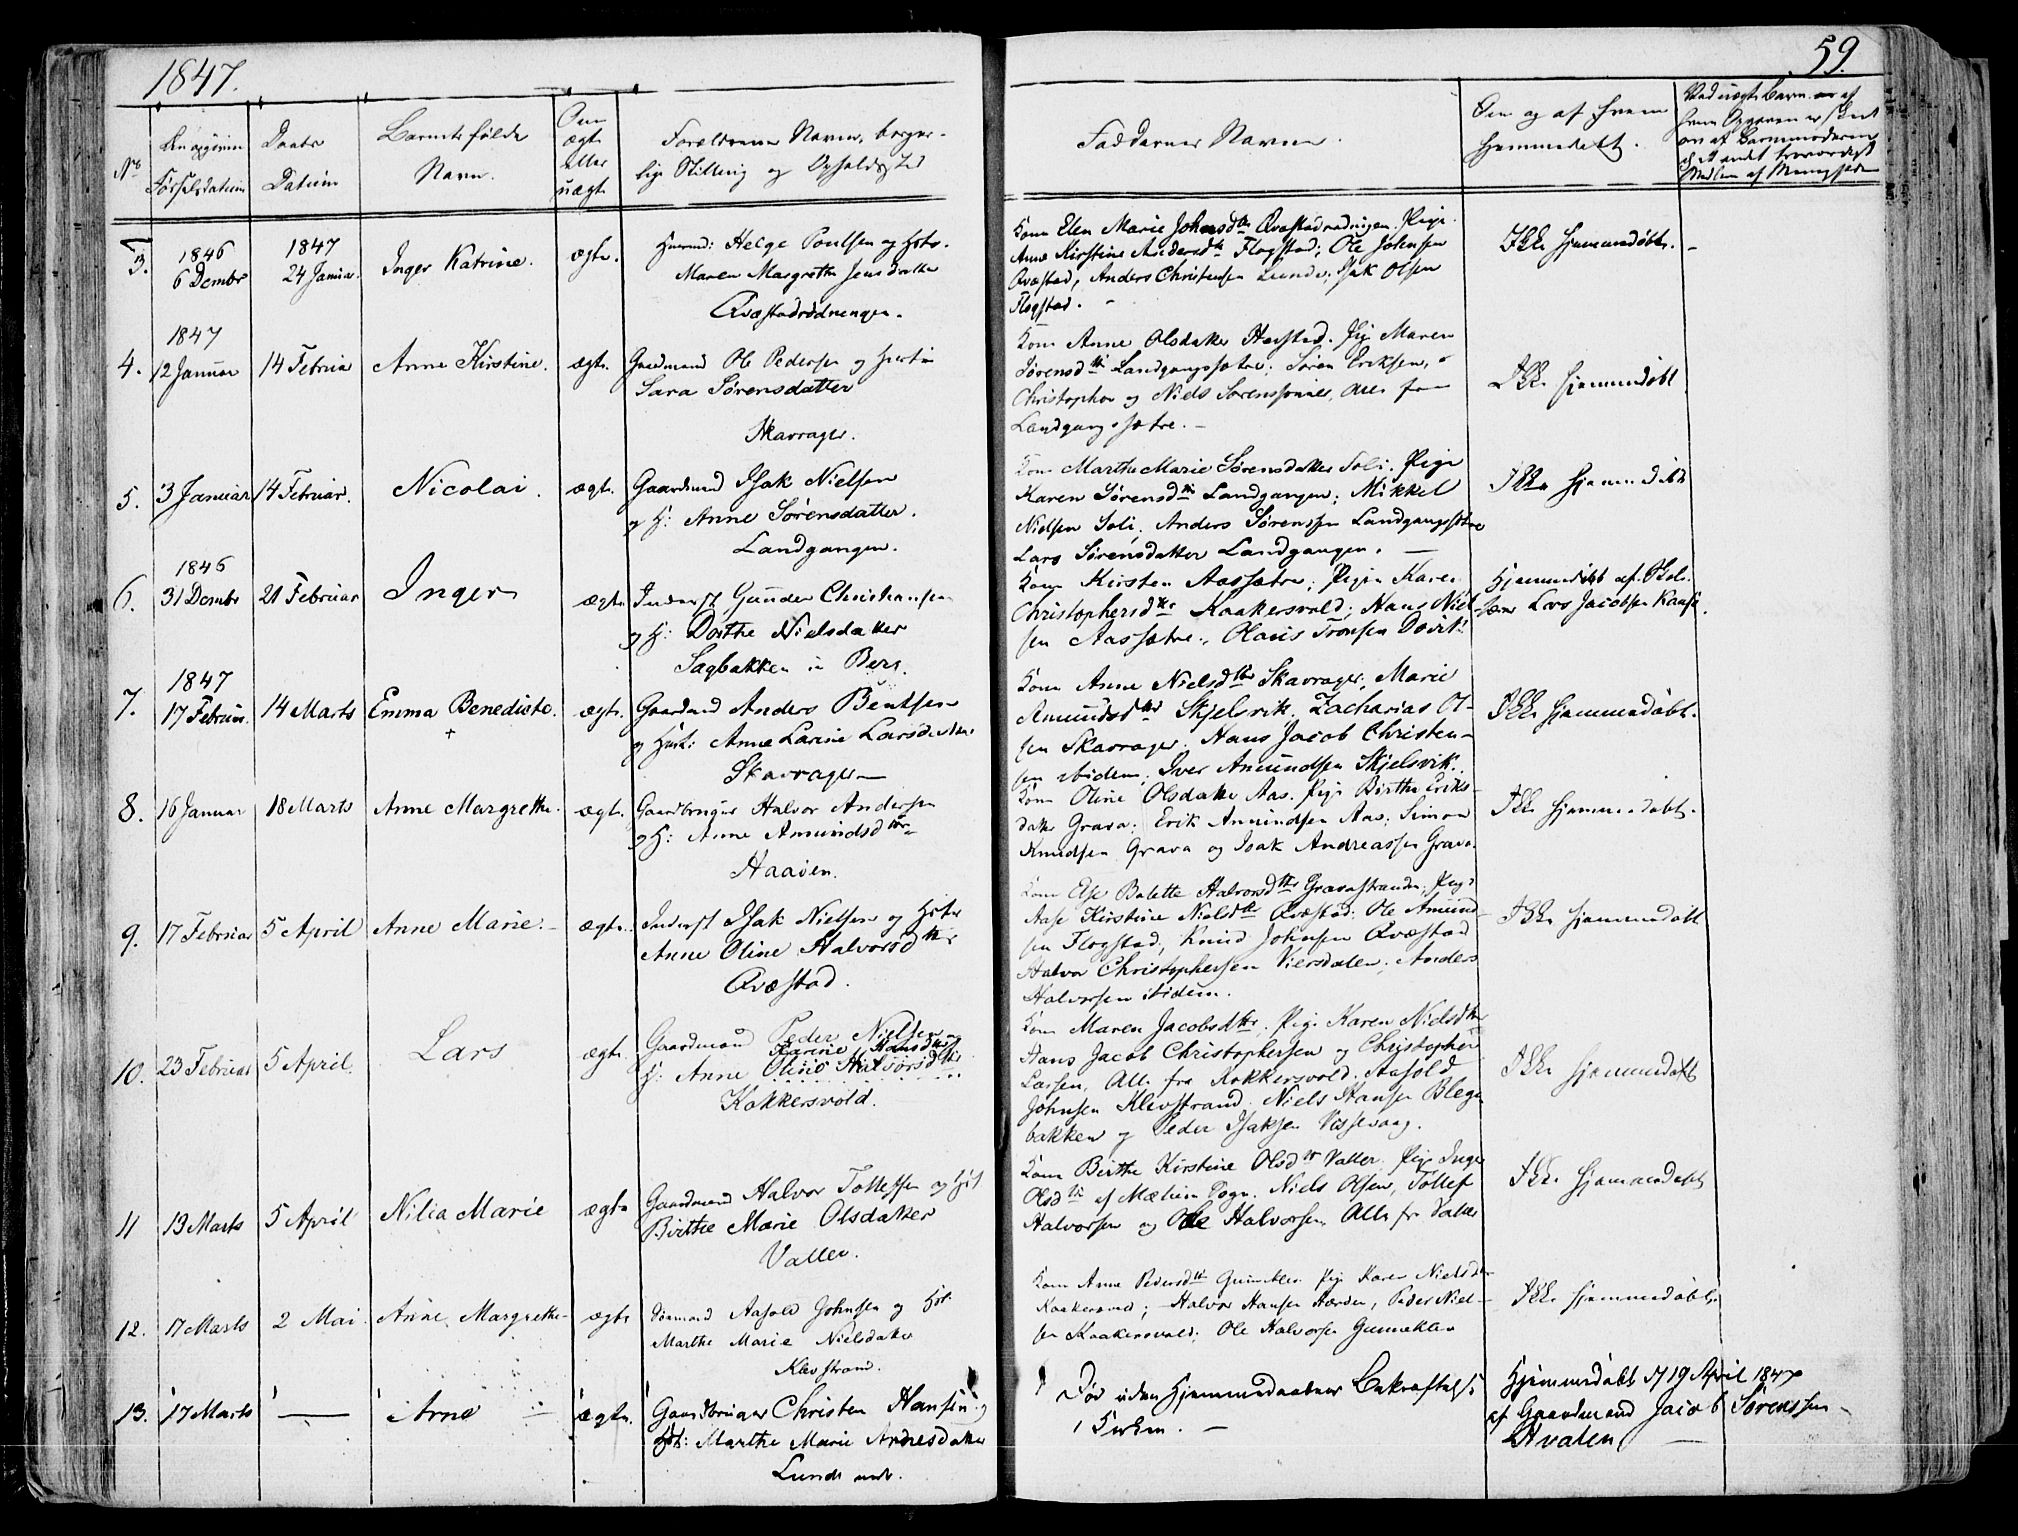 1847.
59.
No
Den opgivne
Fødselsdatum
Daabs
Datum
Barnets fulde
Navn.
Om
ægte
eller
uægte
Forældrenes Navne, borger-
lige Stilling og Opholdssted
Faddernes Navne.
Om og af hvem
hjemmedøbt.
3.
1846
6 Decmbr
1847
24 Januar
Inger Katrine.
ægte.
Helge Poulsen og
Maren Margrethe Jensdatter
Kone Elen Marie Johnsdtr Pige
Anne Kirstine Andersdtr Flogstad; Ole Johnsen
Qvæstad, Anders Christensen Lunde; Isak Olsen
Flogstad.
Ikke hjemmedøbt.
1847
4.
12 Januar
14 Februar
Anne Kirstine.
ægte.
Gaardmand Ole Pedersen og Hustru
Sara Sørensdatter
Skavrager.
Kone Anne Olsdatter Pige Maren
Sørensdtr Landgangssætre; Søren Eriksen,
Christopher og Niels Sørenssønner, Alle fra
Landgangssætre.
Ikke hjemmedøbt
5.
3 Januar
14 Februar.
Nicolai.
ægte.
Gaardmand Isak Nielsen
og H: Anne Sørensdatter.
Landgangen.
Kone Marthe Marie Sørensdatter Soli. Pige
Karen Sørensdtr Landgangen; Mikkel
Nielsen Soli, Anders Sørensen Landgangssætre
Lars Sørensdatter Landgangen.
Ikke hjemmedøbt
1846
6.
31 Decmbr
21 Februar
Inger
ægte
Inderst Gunder Christiansen
og H: Dorthe Nielsdatter
Sagbakken i Berg.
Kone Kirsten Aassætre; Pigen Karen
Christophersdtr Kaakersvold; Hans Niel-
sen Aassætre; Olaus Tronsen
Hjemmedøbt af Skol.
Lars Jacobsen
1847
7.
17 Februar
14 Marts
Emma Benedicte.
+
ægte.
Gaardmand Anders Bentsen
og Hust: Anne Larine Larsdatter
Skavrager
Kone Anne Nielsdtr Skavrager, Marie
Amundsdtr Skjelsvik. Zacharias Ol-
sen Skavrager. Hans Jacob Christen-
sen ibidem. Iver Amundsen Skjelsvik.
Ikke hjemmedøbt.
8.
16 Januar
18 Marts
Anne Margrethe.
ægte.
Gaardbruger Halvor Andersen
og H: Anne Amundsdtr
Haaøen.
Kone Oline Olsdatter Aas. Pige Birthe Eriks-
datter Grava; Erik Amundsen Aas; Simon
Knudsen Grava og Isak Andreassen Grava.
Ikke hjemmedøbt.
9.
17 Februar
5 April
Anne Marie.
ægte.
Inderst Isak Nielsen og Hstr
Anne Oline Halvorsdtr
Qvæstad.
Kone Else Bolette Halvorsdtr Gravastranden; Pige
Aase Kirstine Nielsdtr Qvæstad: Ole Amund-
sen Flogstad, Knud Johnsen Qvæstad
Halvor Christophersen Viersdalen; Anders
Halvorsen ibidem.
Ikke hjemmedøbt
10.
23 Februar
5 April.
Lars
ægte.
Gaardmand Peder Nielsen og
Karine Hansdtr
H: Anne Oline Halvorsdtr
Kokkersvold.
Kone Maren Jacobsdtr. Pige Karen Nielsdtr
Hans Jacob Christophersen og Christopher
Larsen, Alle fra Kokkersvold. Aasold
Johnsen Klevstrand. Niels Hansen Blege-
bakken og Peder Isaksen Vissevaag.
Ikke hjemmedøbt
11
13 Marts
5 April
Nilia Marie
ægte
Gaardmand Halvor Tollefsen og Hst
Birthe Marie Olsdatter
Valler.
Kone Birthe Kirstine Olsdtr Valler. Pige Inger
Olsdtr af Mælum Sogn. Niels Olsen, Tollef
Halvorsen og Ole Halvorsen Alle fr Valler
Ikke hjemmedøbt
12.
17 Marts
2 Mai
Anne Margrethe
ægte
Aasold Johnsen og Hst.
Marthe Marie Nielsdatter
Klevstrand.
Kone Anne Pedersdtr Gunneklev. Pige Karen Nielsdtr
Kaakersvold; Halvor Hansen Peder Niel-
sen Kaakersvold; Ole Halvorsen Gunneklev
Ikke hjemmedøbt.
13.
17 Marts
—
Arne
ægte.
Gaardbruger Christen Hansen og
Hst: Marthe Marie Andersdatter
Lunde
Død uden Hjemmedaabens Bekræftelse
i Kirken.
Hjemmedøbt d 19 April 1847
af Gaardmand Jacob Sørensen
Hvalen